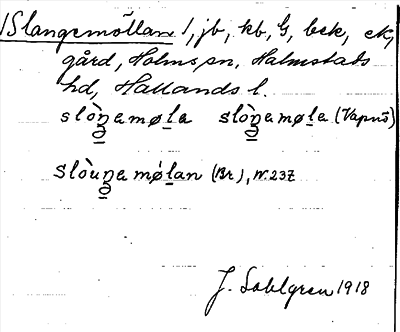 /Slangemöllan/, jb, kb, G, bek, ek,
gård, Holms sn, Halmstads
hd, Hallands l.
slòŋamøla slòŋamøla (Vapnö)
slòuŋamølan (Br), N. 237
J. Sahlgren 1918